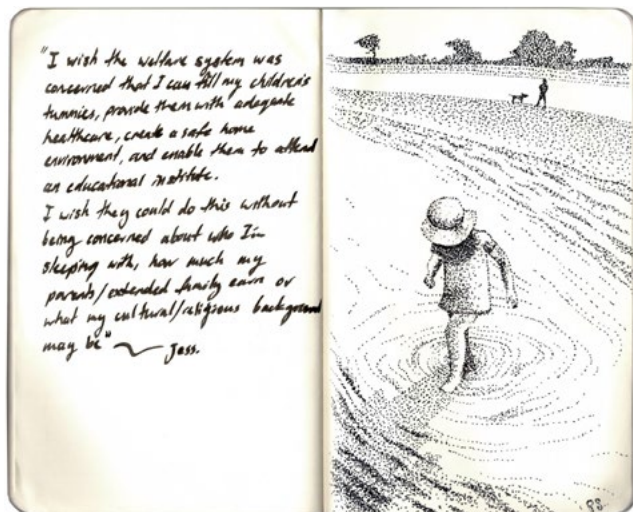 "I wish the welfare system was
concerned that I can fill my children's
tummies, provide them with adequate
healthcare, create a safe home
environment, and enable them to attend
an educational institute.
I wish they could do this without
being concerned about who I'm
sleeping with, how much my
parents/extended family earn or
what my cultural/religious background
may be" ~ Jess.